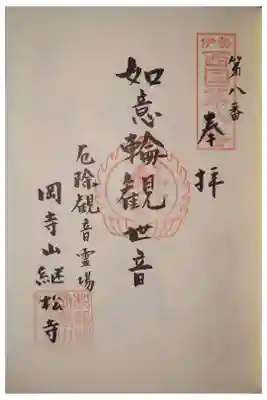 第八番
奉拝
如意輪観世音
厄除観音霊場
岡寺山継松寺